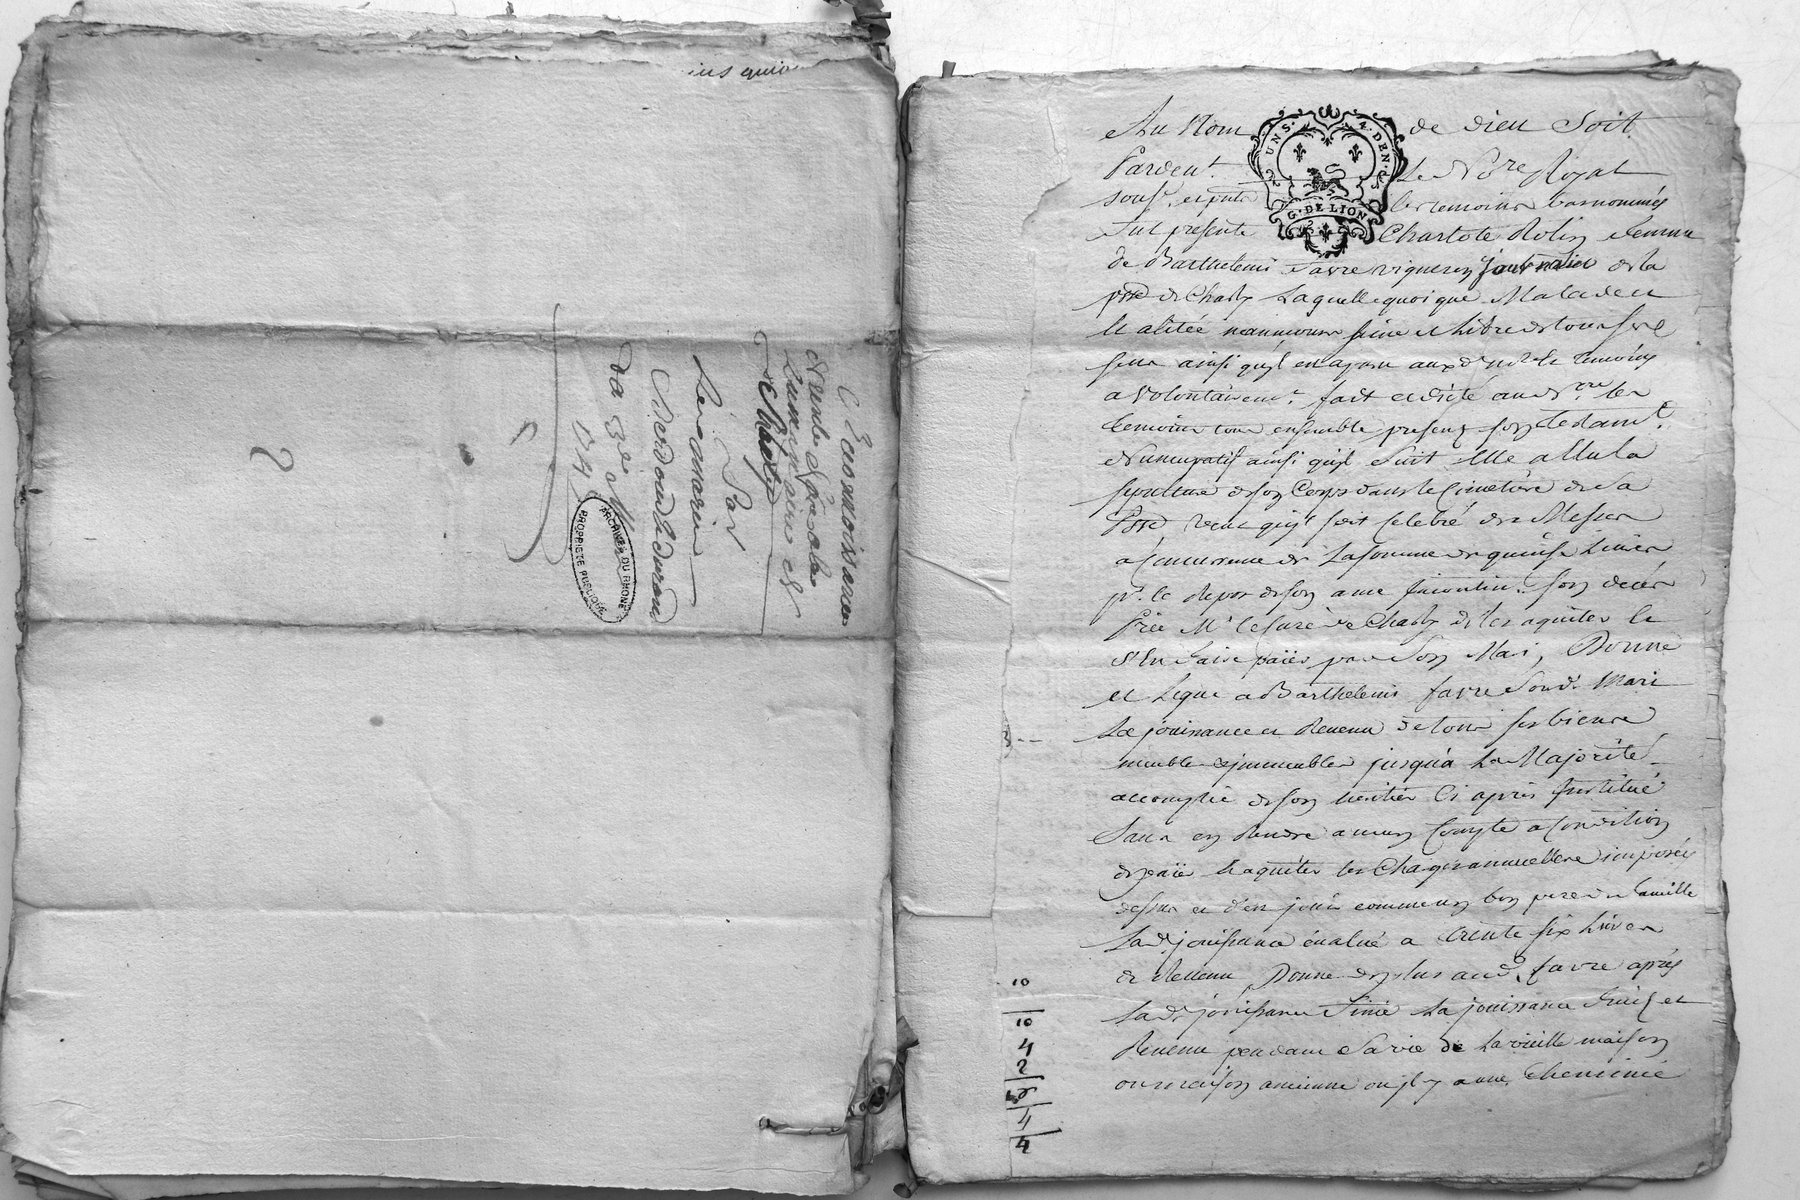 Reconnoissance
Du 23e
ARCHIVES DU RHONE
PROPRIETE PUBLIQUE
2
Au Nom de dieu Soit
UN S. 4. DEN.
G. DE LION
Pardevt. Le Nore Royal
sousé. et présents les temoins bas nommés
fut presente Charlote Rolin femme
de Barthelemi favre vigneron journalier de la
psse de Charly Laquelle quoique Malade et
alitée neanmoins saine et libre de tous ses
sens ainsi qu'il en aparu aux d. nre et temoins
a volontairemt. fait et dicté aud. nre les
temoins tous ensemble presents son testamt.
Nuncupatif ainsi qu'il suit Elle a Elu la
sepulture de son Corps dans le cimetière de sa
psse veut qu'il soit Celebré des Messes
a concurrence de La somme de quinse Livres
pr. le repos de son ame incontint. son decès
prie Mr le Curé de Charly de les aquiter et
s'en faire païer par son Mari, Donne
et Legue a Barthelemi favre Sond. Mari
La jouissance et Revenu de tous ses biens
meubles et immeubles jusqu'a La Majorité
accomplie de son heritier Ci après Institué
Sans en Rendre aucun Compte a Condition
de païer et aquiter les Charges annuelles imposées
dessus et d'en jouir comme un bon pere de famille
Lad. jouissance évalué a trente six Livres
de Revenu, Donne de plus aud. favre après
Lad. jouissance finie La jouissance fruis et
Revenu pendant sa vie de La vieille maison
ou maison ancienne ou il y a une cheminée
10
10
4
2
4
4